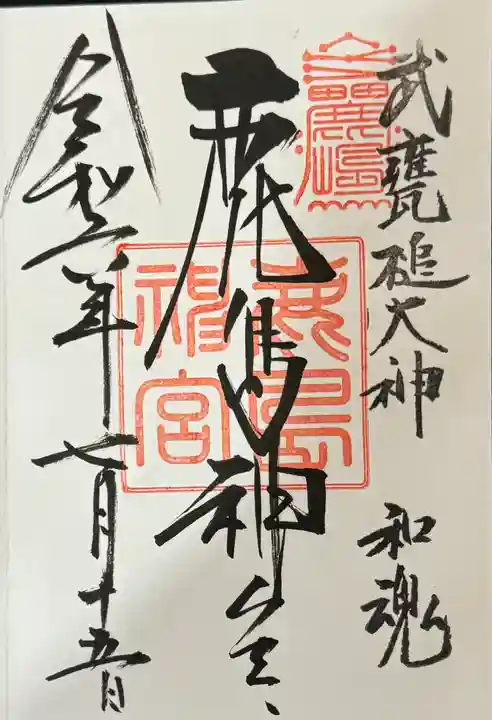 武甕槌大神
和魂
鹿島神宮
鹿島神宮
令和六年七月十五日